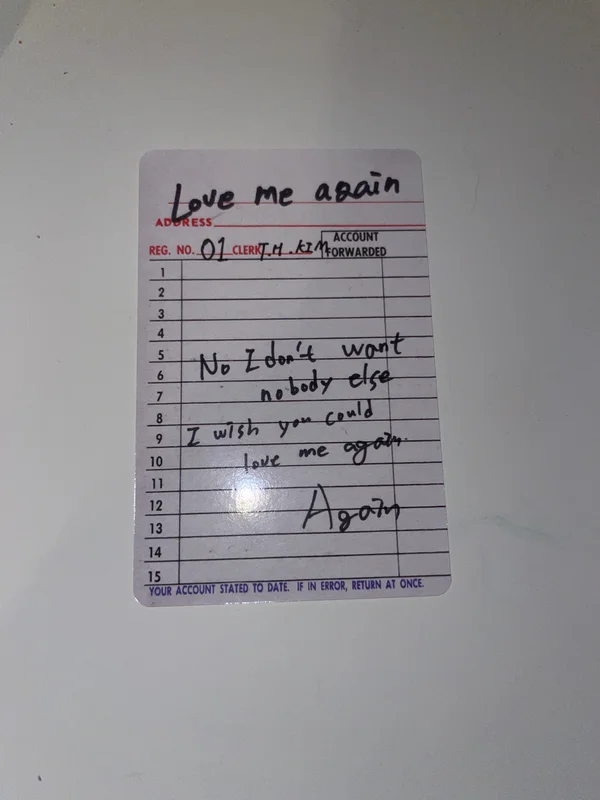 Love me again
ADDRESS
REG. NO. 01 CLERK T.H.KIM ACCOUNT FORWARDED
1
2
3
4
5
6 No I don't want
7 nobody else
8
9 I wish you could
10 love me again
11
12
13 Again
14
15
YOUR ACCOUNT STATED TO DATE. IF IN ERROR, RETURN AT ONCE.